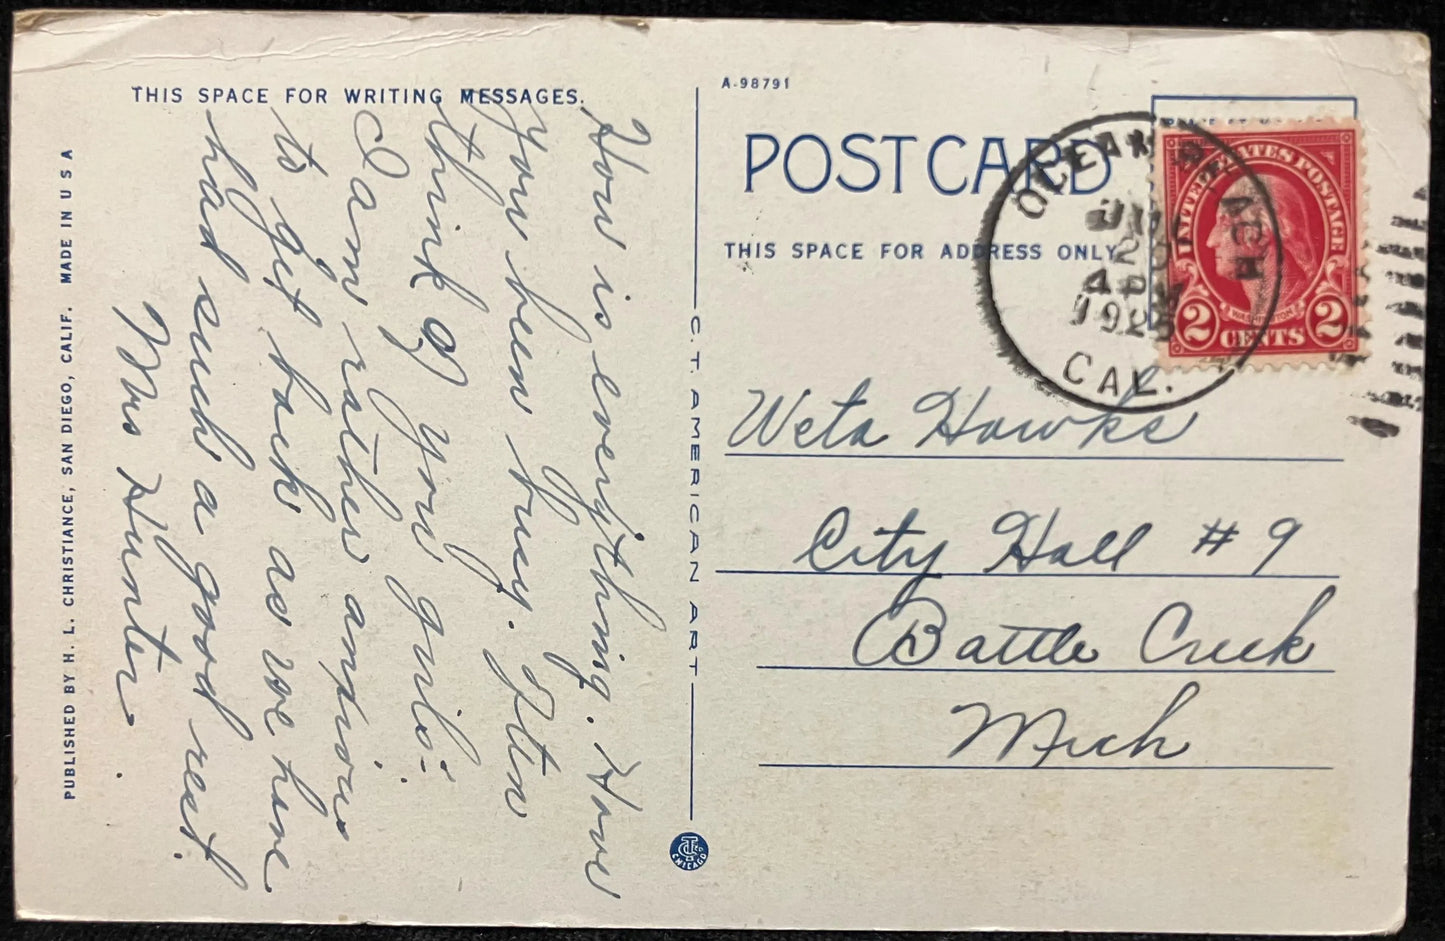 THIS SPACE FOR WRITING MESSAGES.
How is everything. Have
you been busy. Often
think of you girls.
I am rather anxious
to get back as we have
had such a good rest.
Mrs Hunter.
PUBLISHED BY H. L. CHRISTIANCE, SAN DIEGO, CALIF. MADE IN U S A
C. T. AMERICAN ART
CHICAGO
A-98791
POST CARD
THIS SPACE FOR ADDRESS ONLY
OCEAN BEACH
CAL.
UNITED STATES POSTAGE
WASHINGTON
2 CENTS 2
Weta Hawks
City Hall # 9
Battle Creek
Mich